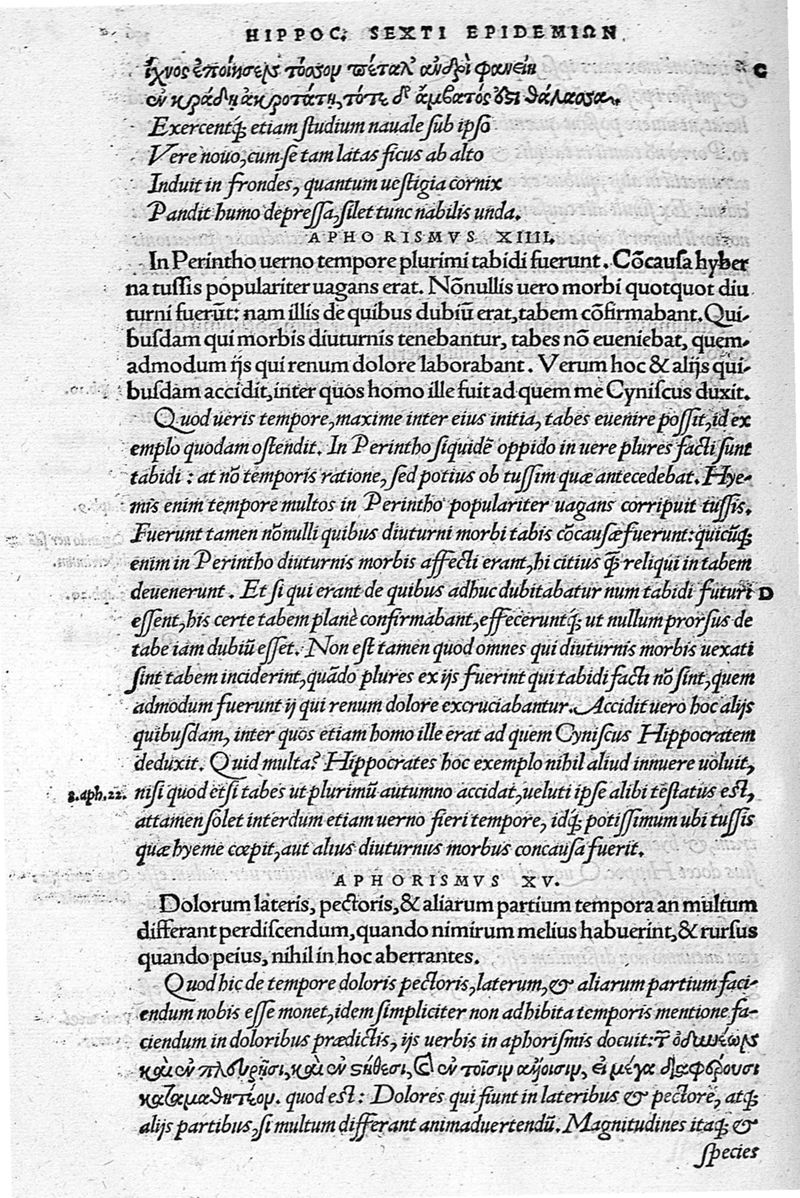 HIPPOC. SEXTI EPIDEMIΩN
ἴχνος ἐποίησεν, τόσσον πέταλ' ἀνδρὶ φανείη
ἐν κράδῃ ἀκροτάτῃ, τότε δ' ἄμβατός ἐστι θάλασσα. C
Exercentq; etiam studium nauale sub ipso
Vere nouo, cum se tam latas ficus ab alto
Induit in frondes, quantum uestigia cornix
Pandit humo depressa, silet tunc nabilis unda.
APHORISMVS XIIII.
In Perintho uerno tempore plurimi tabidi fuerunt. Cõcausa hyber
na tussis populariter uagans erat. Nõnullis uero morbi quotquot diu
turni fuerũt: nam illis de quibus dubiũ erat, tabem cõfirmabant. Qui-
busdam qui morbis diuturnis tenebantur, tabes nõ eueniebat, quem-
admodum ijs qui renum dolore laborabant. Verum hoc & alijs qui-
busdam accidit, inter quos homo ille fuit ad quem me Cyniscus duxit.
Quod ueris tempore, maxime inter eius initia, tabes euenire possit, id ex
emplo quodam ostendit. In Perintho siquidẽ oppido in uere plures facti sunt
tabidi: at nõ temporis ratione, sed potius ob tussim quæ antecedebat. Hye-
mis enim tempore multos in Perintho populariter uagans corripuit tussis.
Fuerunt tamen nõnulli quibus diuturni morbi tabis cõcausæ fuerunt: quicũq;
enim in Perintho diuturnis morbis affecti erant, hi citius q̃ reliqui in tabem
deuenerunt. Et si qui erant de quibus adhuc dubitabatur num tabidi futuri D
essent, his certe tabem planè confirmabant, effeceruntq; ut nullum prorsus de
tabe iam dubiũ esset. Non est tamen quod omnes qui diuturnis morbis uexati
sint tabem inciderint, quãdo plures ex ijs fuerint qui tabidi facti nõ sint, quem
admodum fuerunt ij qui renum dolore excruciabantur. Accidit uero hoc alijs
quibusdam, inter quos etiam homo ille erat ad quem Cyniscus Hippocratem
deduxit. Quid multa? Hippocrates hoc exemplo nihil aliud innuere uoluit,
3. aph. 22. nisi quod etsi tabes ut plurimũ autumno accidat, ueluti ipse alibi testatus est,
attamen solet interdum etiam uerno fieri tempore, idq; potissimum ubi tussis
quæ hyeme cœpit, aut alius diuturnus morbus concausa fuerit.
APHORISMVS XV.
Dolorum lateris, pectoris, & aliarum partium tempora an multum
differant perdiscendum, quando nimirum melius habuerint, & rursus
quando peius, nihil in hoc aberrantes.
Quod hic de tempore doloris pectoris, laterum, & aliarum partium faci-
endum nobis esse monet, idem simpliciter non adhibita temporis mentione fa-
ciendum in doloribus prædictis, ijs uerbis in aphorismis docuit:
καὶ ἐν πλευρῇσι, καὶ ἐν στήθεσι, καὶ ἐν τοῖσιν ἄλλοισιν, εἰ μέγα διαφέρουσι
καταμαθητέον. quod est: Dolores qui fiunt in lateribus & pectore, atq;
alijs partibus, si multum differant animaduertendũ. Magnitudines itaq; &
species